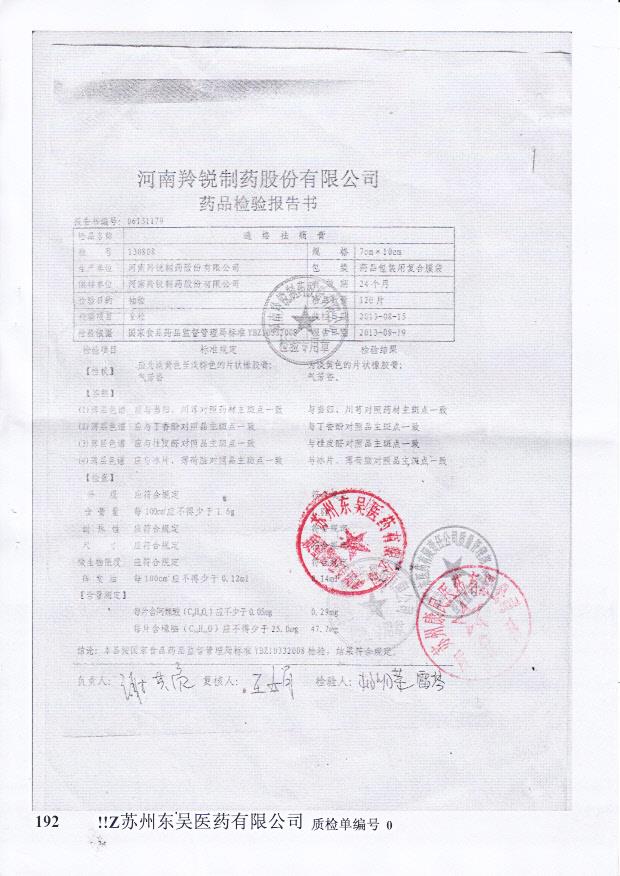 河南羚锐制药股份有限公司
药品检验报告书
报告书编号: 06131179
检品名称 通络祛痛膏
批 号 130808 规 格 7cm×10cm
生产单位 河南羚锐制药股份有限公司 包 类 药品包装用复合膜袋
供样单位 河南羚锐制药股份有限公司 24个月
检验目的 抽检 120片
检验项目 全检 2013-08-15
检验依据 国家食品药品监督管理局标准YBZ10332008 报告日期 2013-08-19
检验项目 标准规定 检验结果
【性状】 应为淡黄色至淡棕色的片状橡胶膏; 为淡黄色的片状橡胶膏;
气芳香 气芳香.
【鉴别】
(1)薄层色谱 应与当归、川芎对照药材主斑点一致 与当归、川芎对照药材主斑点一致
(2)薄层色谱 应与丁香酚对照品主斑点一致 与丁香酚对照品主斑点一致
(3)薄层色谱 应与桂皮醛对照品主斑点一致 与桂皮醛对照品主斑点一致
(4)薄层色谱 应与冰片、薄荷脑对照品主斑点一致 与冰片、薄荷脑对照品主斑点一致
【检查】
外 观 应符合规定
含膏量 每100cm²应不得少于1.6g
耐热性 应符合规定 符合规定
尺 寸 应符合规定
微生物限度 应符合规定
挥发油 每100cm²应不得少于0.12ml 0.14ml
【含量测定】
每片含阿魏酸 应不少于0.05mg 0.29mg
每片含樟脑 应不得少于25.0mg 47.7mg
结论: 本品按国家食品药品监督管理局标准YBZ10332008检验, 结果符合规定.
负责人: 复核人: 检验人:
检验专用章
苏州东吴医药有限公司
192 !!Z苏州东吴医药有限公司 质检单编号 0